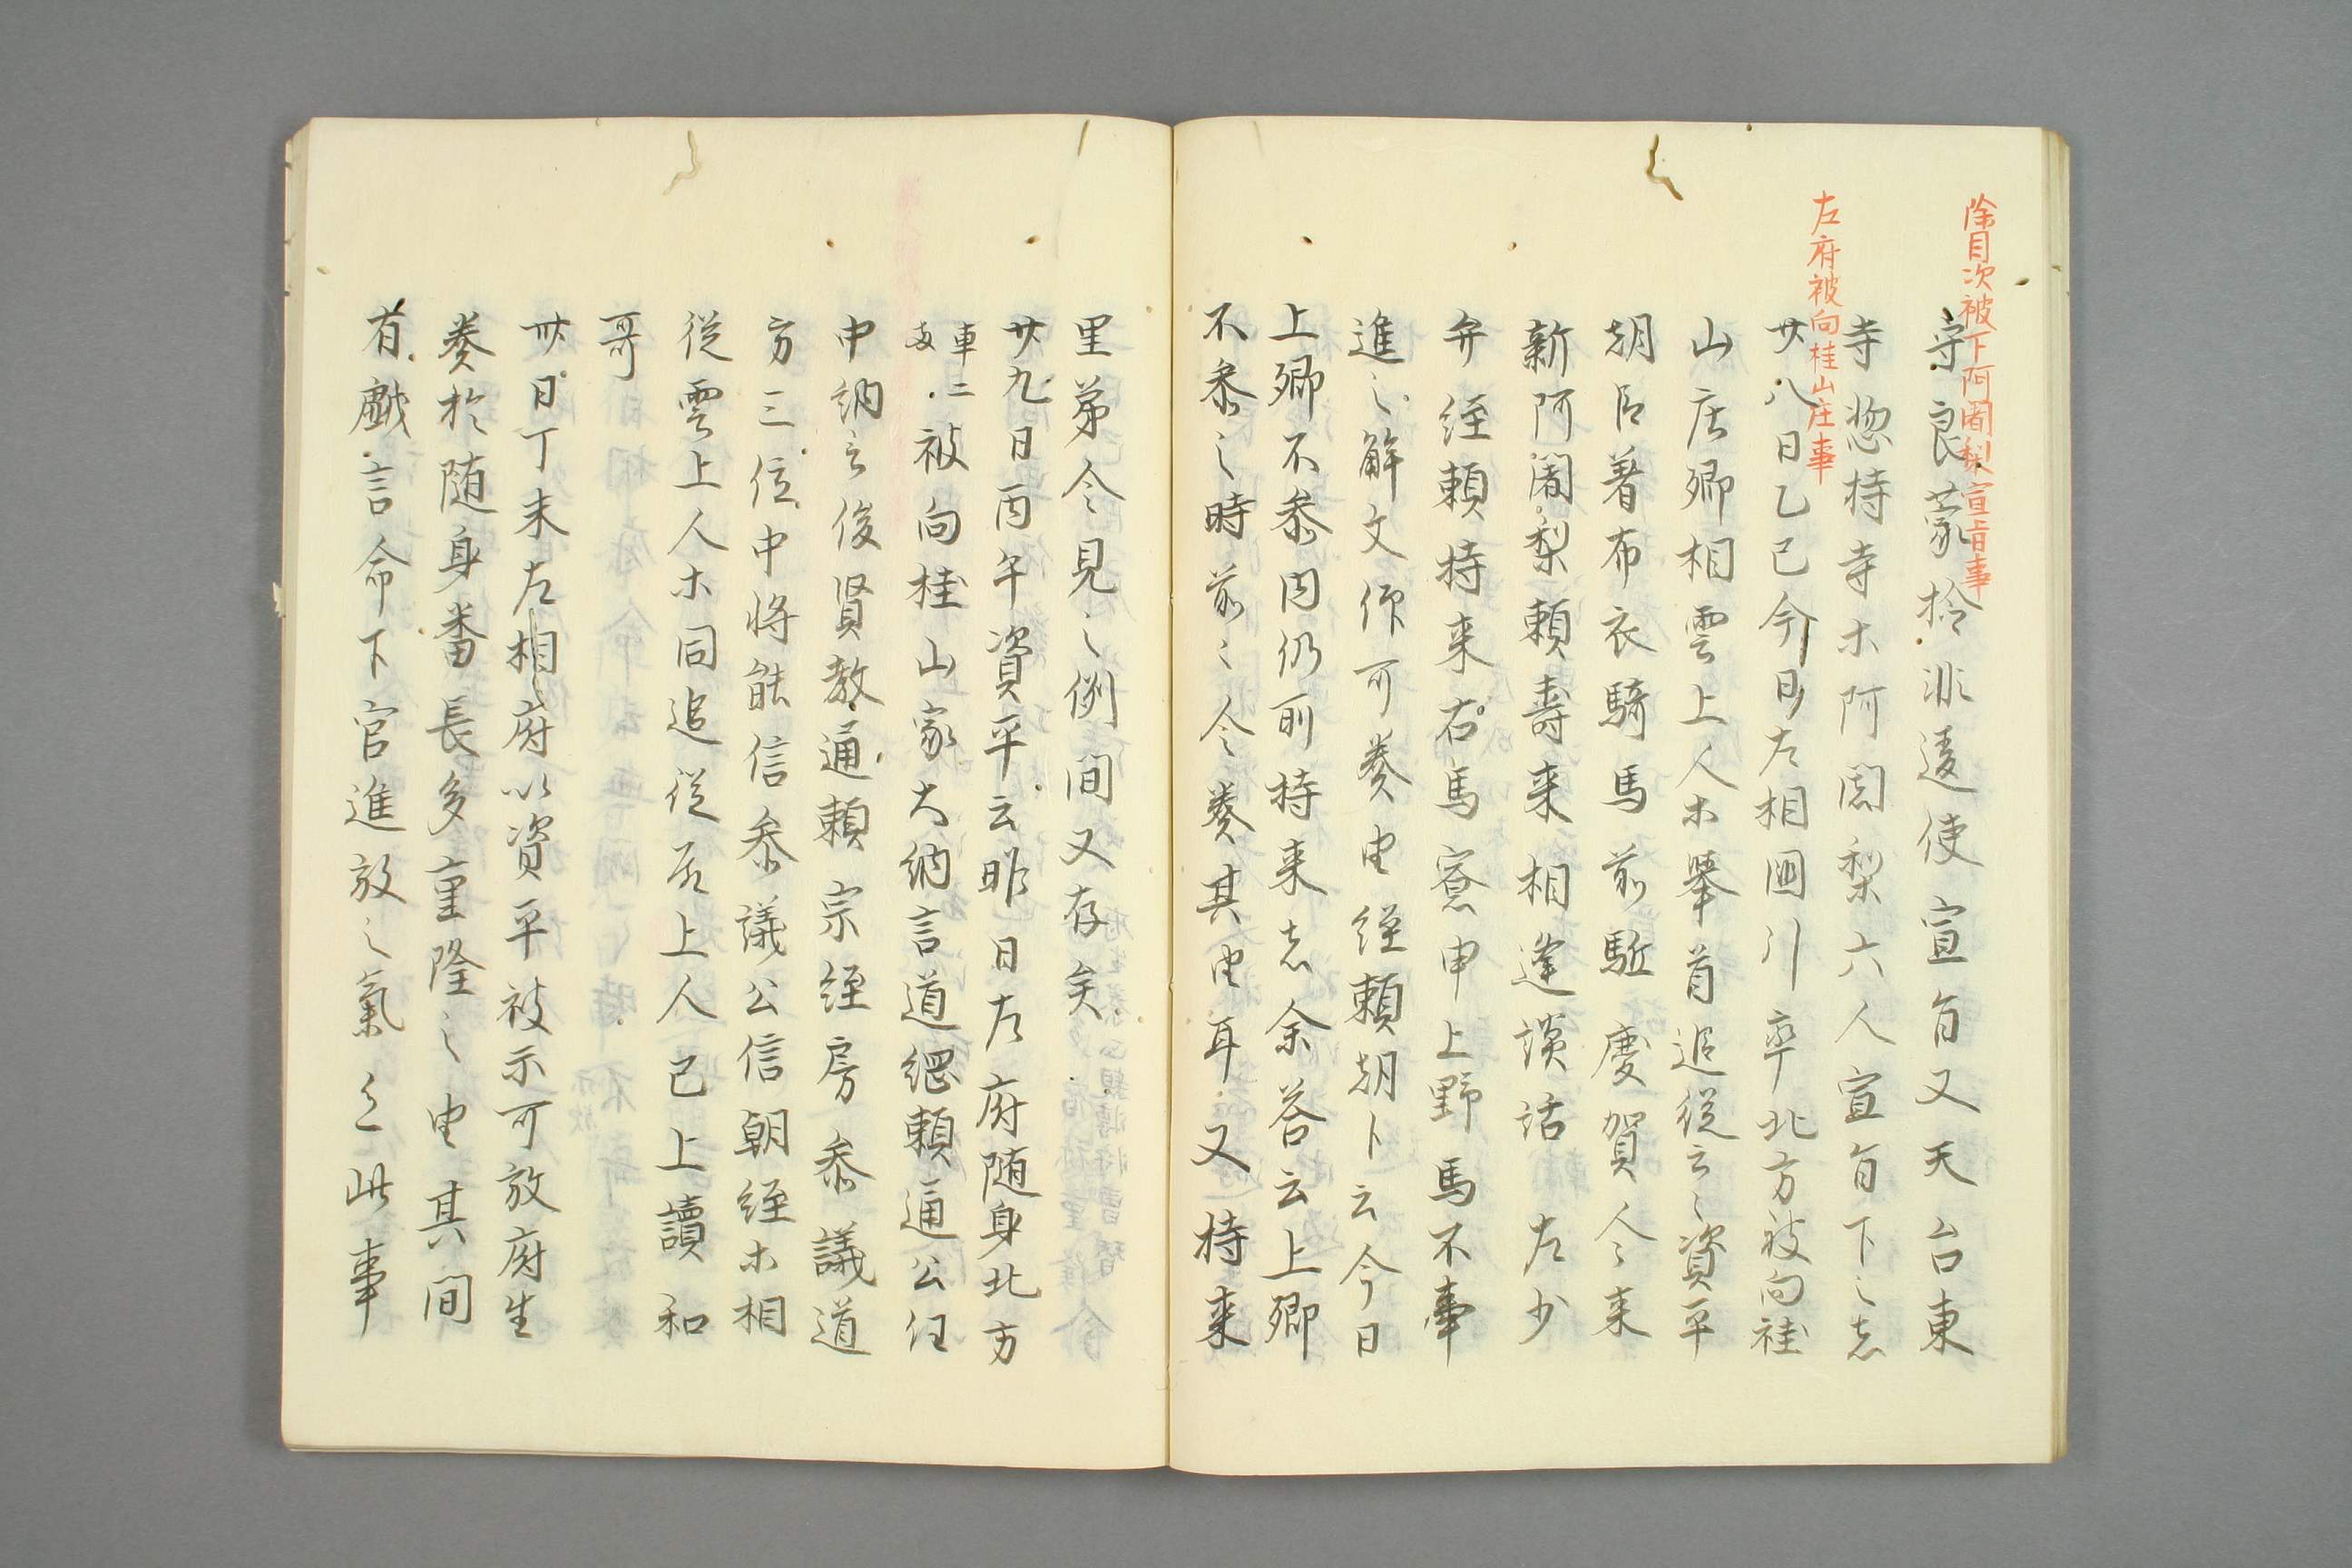 除目次被下阿闍梨宣旨事
左府被向桂山庄事
寺良蒙検非違使宣旨又天台東
寺惣持寺ホ阿闍梨六人宣旨下之者
廿八日乙巳今日左相国引率北方被向桂
山庄卿相雲上人ホ挙首追従云々資平
朝臣着布衣騎馬前駈慶賀人々来
新阿闍梨頼寿来相逢談話左少
弁経頼持来右馬寮申上野馬不牽
進之解文仰可奏由経頼朝臣云今日
上卿不参内仍所持来者余答云上卿
不参之時前々令奏其由耳又持来
里第令見之例間又存矣
廿九日丙午資平云昨日左府随身北方
車二両被向桂山家大納言道綱頼通公任
中納言俊賢教通頼宗経房参議道
方三位中将能信参議公信朝経ホ相
従雲上人ホ同追従扈上人已上読和
哥
卅日丁未左相府以資平被示可放府生
奏於随身番長多重隆之由其間
有戯言命下官進放之気色此事